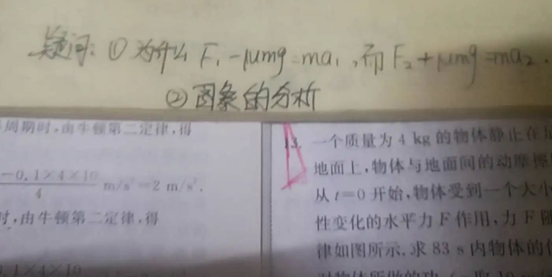 疑问: ① 为什么 F₁-μmg=ma₁, 而 F₂+μmg=ma₂.
② 图象的分析
周期时,由牛顿第二定律,得
-0.1×4×10
4
m/s²=2 m/s².
时,由牛顿第二定律,得
.1×4×10
13. 一个质量为 4 kg 的物体静止在
地面上,物体与地面间的动摩擦
从 t=0 开始,物体受到一个大小
性变化的水平力 F 作用,力 F 随
律如图所示.求 83 s 内物体的